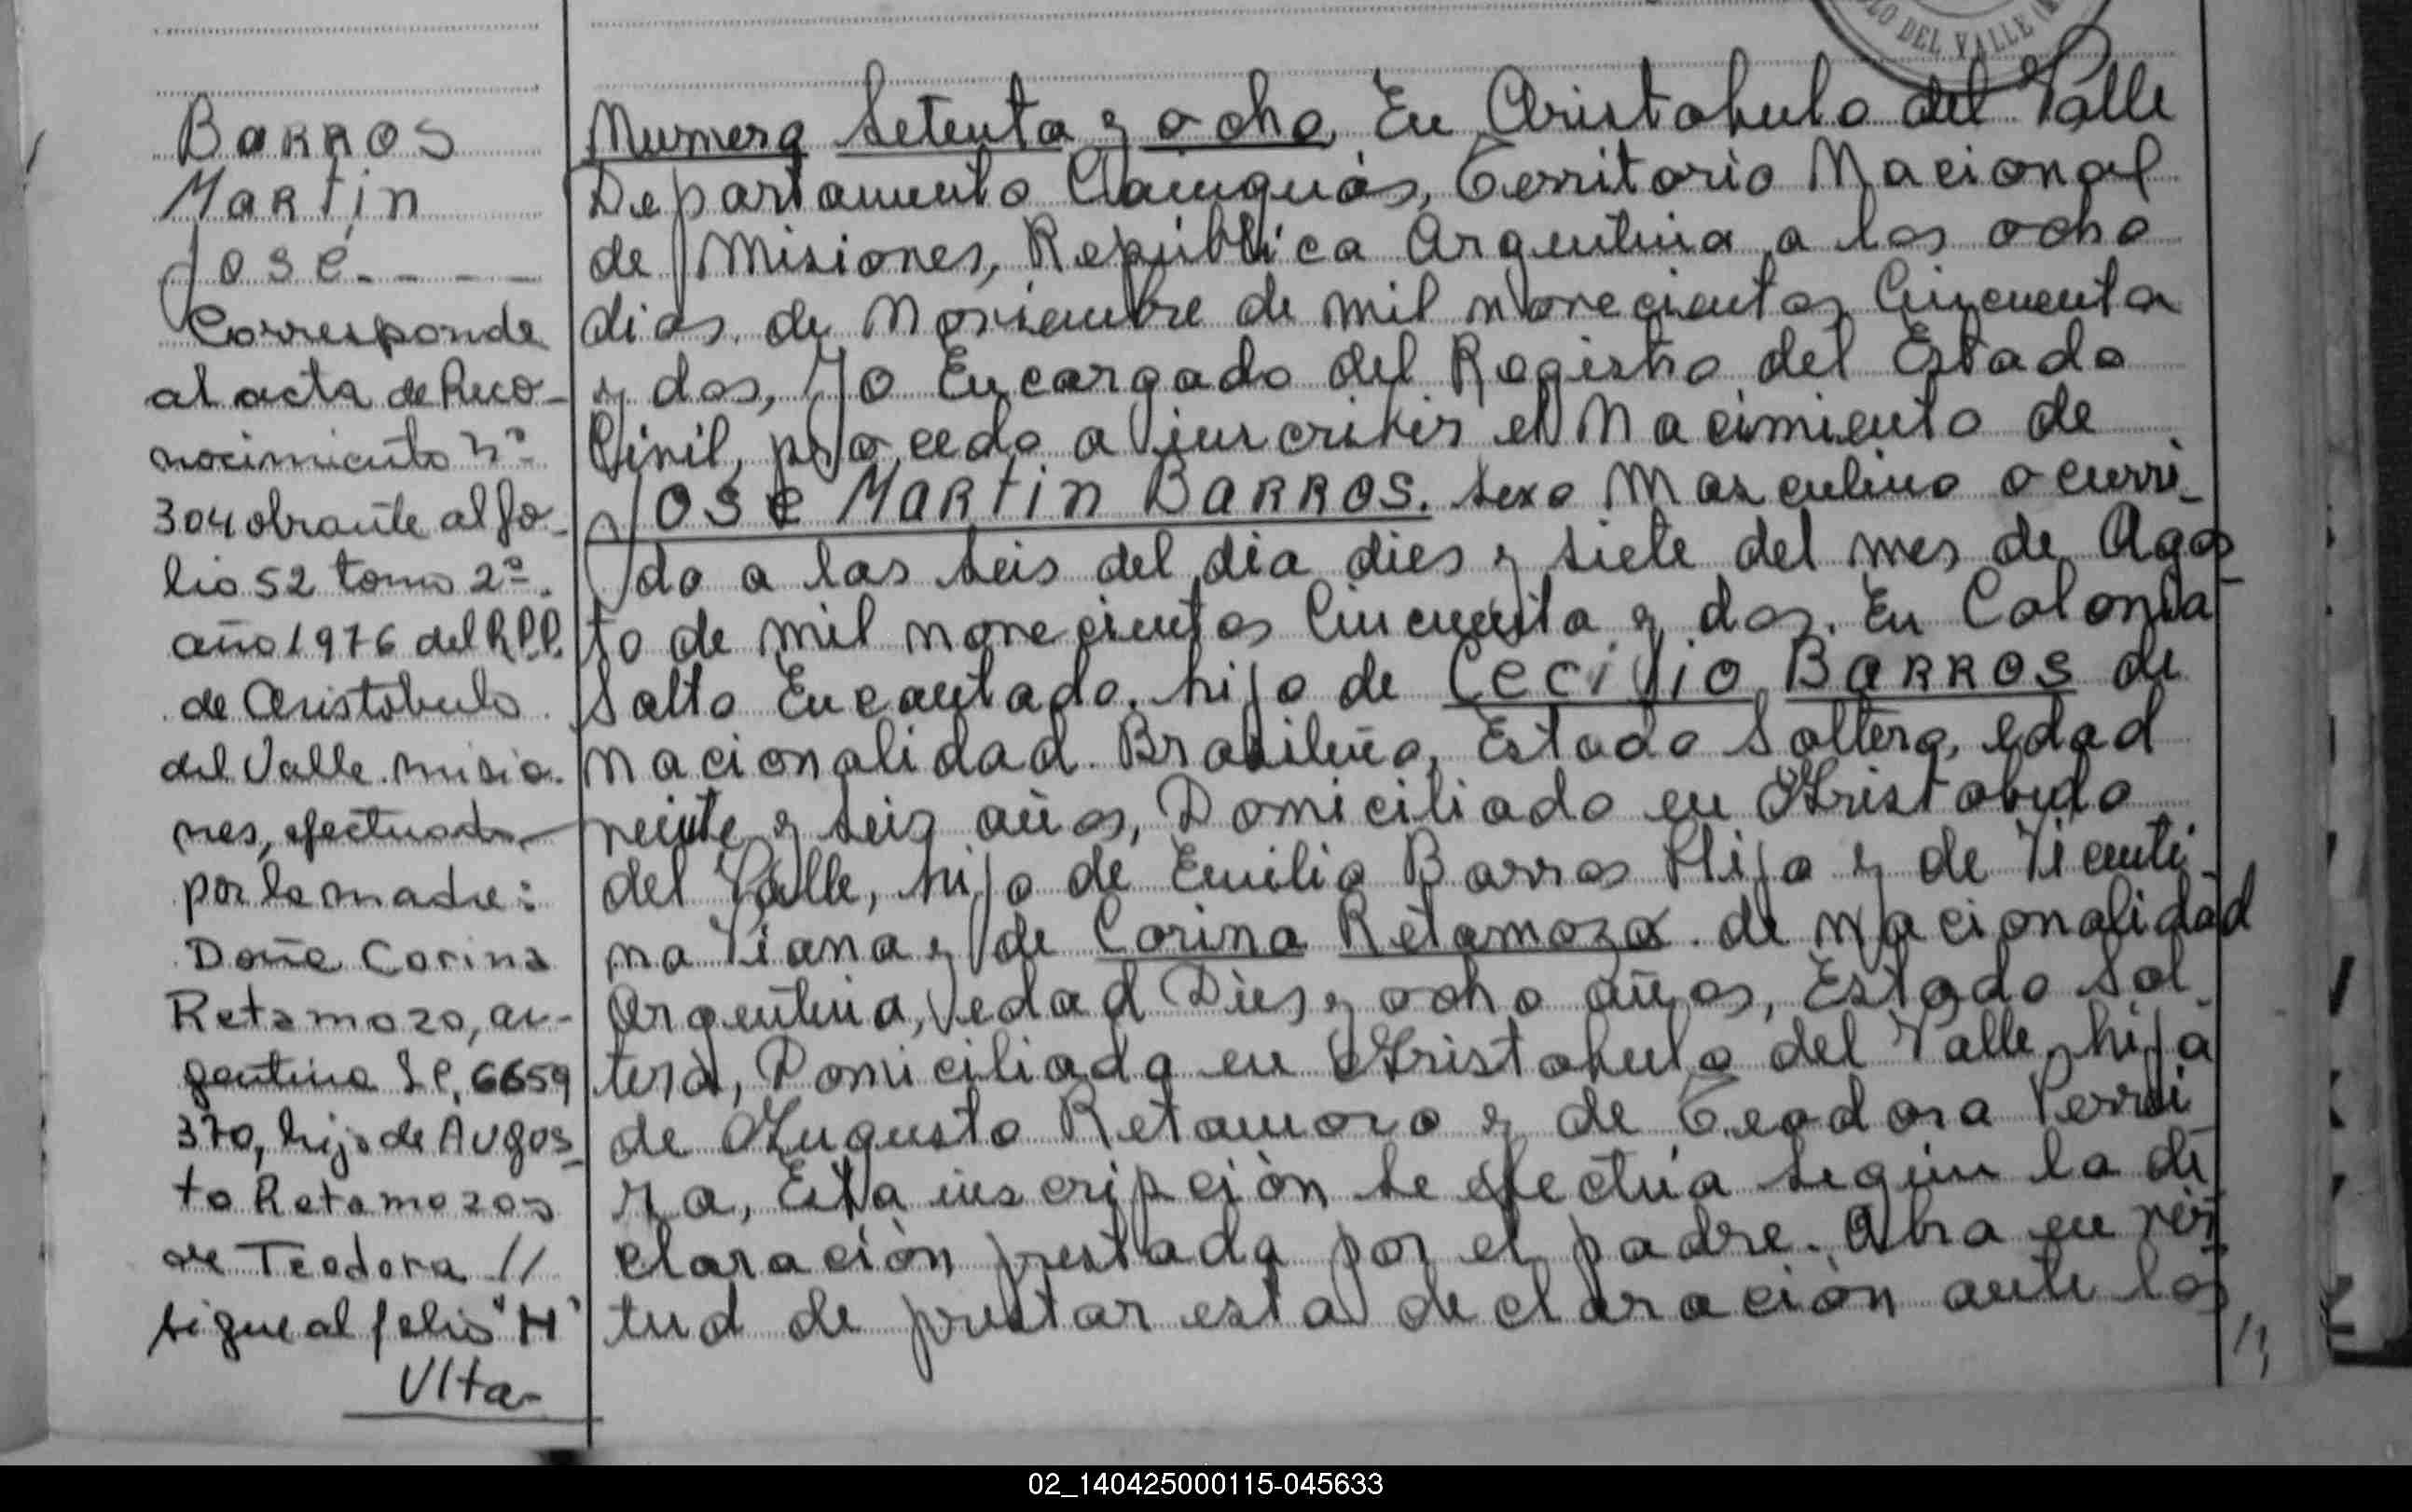 LO DEL VALLE (M
BARROS
MARTIN
JOSE
Corresponde
al acta de Reco-
nocimiento Nº
304 obrante al fo-
lio 52 tomo 2º.
año 1976 del R.P.P.
de Aristobulo
del Valle. misio-
nes, efectuado
por la madre:
Doña Corina
Retamozo, ar-
gentina L.C. 6659
370, hija de Augus-
to Retamozo y
de Teodora //
sigue al folio "H"
Vlta-
Numero Setenta y ocho. En Aristobulo del Valle
Departamento Cainguás, Territorio Nacional
de Misiones, República Argentina a los ocho
dias de Noviembre de mil novecientos Cincuenta
y dos, Yo Encargado del Registro del Estado
Civil, procedo a inscribir el Nacimiento de
JOSE MARTIN BARROS. sexo Masculino ocurri-
do a las seis del dia dies y siete del mes de Agos-
to de mil novecientos Cincuenta y dos. En Colonia
Salto Encantado. hijo de CECILIO BARROS de
nacionalidad Brasileña, Estado Soltero, edad
veinte y seis años, Domiciliado en Aristobulo
del Valle, hijo de Emilio Barros Hijo y de Vicenti-
na Viana y de Corina Retamoza. de nacionalidad
Argentina, edad Dies y ocho años, Estado Sol-
tera, Domiciliada en Aristobulo del Valle, hija
de Augusto Retamozo y de Teodora Perrei-
ra, Esta inscripción se efectúa según la de-
claración prestada por el padre. Obra en vir-
tud de prestar esta declaración ante los
//
02_140425000115-045633